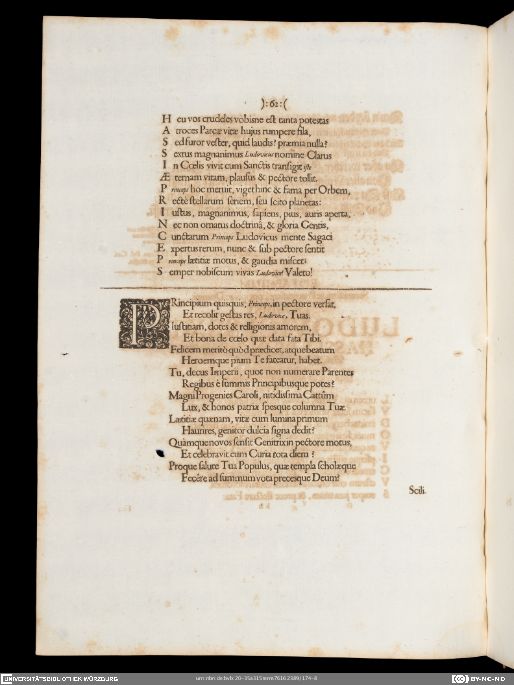 ):62:(
H eu vos crudeles vobisne est tanta potestas
A troces Parcæ vitæ hujus rumpere fila,
S ed furor vester, quid laudis? præmia nulla?
S extus magnanimus Ludovicus nomine Clarus
I n Cœlis vivit cum Sanctis transigit
Æ ternam vitam, plausus & pectore tollit.
P rinceps hoc meruit, viget hinc & fama per Orbem,
R ectè stellarum seriem, seu scito planetas:
I ustus, magnanimus, sapiens, pius, auris aperta,
N ec non ornatus doctrinâ, & gloria Gentis,
C unctarum Princeps Ludovicus mente Sagaci
E xpertus rerum, nunc & sub pectore sentit
P rinceps lætitiæ motus, & gaudia miscet:
S emper nobiscum vivas Ludovice! Valeto!
PRincipium quisquis, Princeps, in pectore versat,
Et recolit gestas res, Ludovice, Tuas.
Iustitiam, dotes & relligionis amorem,
Et bona de cœlo quæ data fata Tibi.
Felicem meritò quòd prædicet, atque beatum
Heroemque pium Te fateatur, habet.
Tu, decus Imperii, quot non numerare Parentes
Regibus è summis Principibusque potes?
Magni Progenies Caroli, nitidissima Cattûm
Lux, & honos patriæ spesque columna Tuæ.
Lætitiæ quænam, vitæ cum lumina primum
Haurires, genitor dulcia signa dedit?
Quàmque novos sensit Genitrix in pectore motus,
Et celebravit cum Curia tota diem?
Proque salute Tua Populus, quæ templa scholæque
Fecêre ad summum vota precesque Deum?
Scili
UNIVERSITÄTSBIBLIOTHEK WÜRZBURG
CC BY-NC-ND